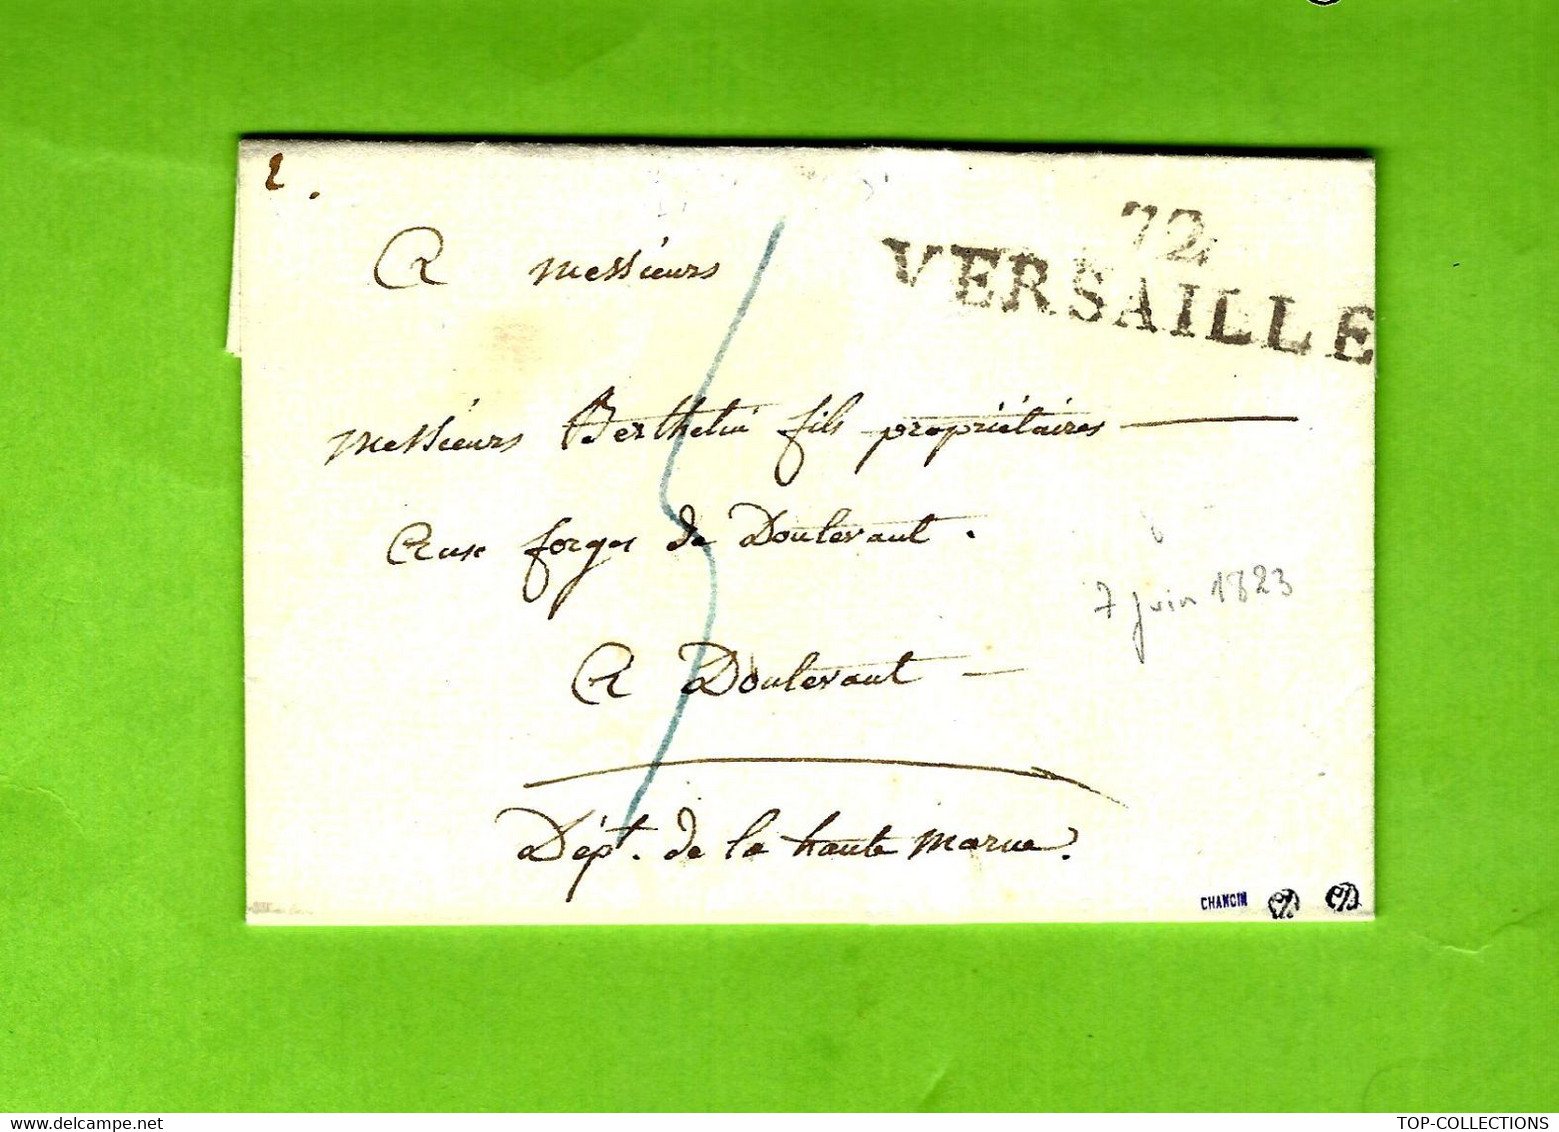 2.
72
VERSAILLE
A messieurs
messieurs Berthelin fils propriétaires
Aux forges de Doulevant.
7 juin 1823
A Doulevant
Dépt. de la haute marne.
CHANCIN
TOP-COLLECTIONS